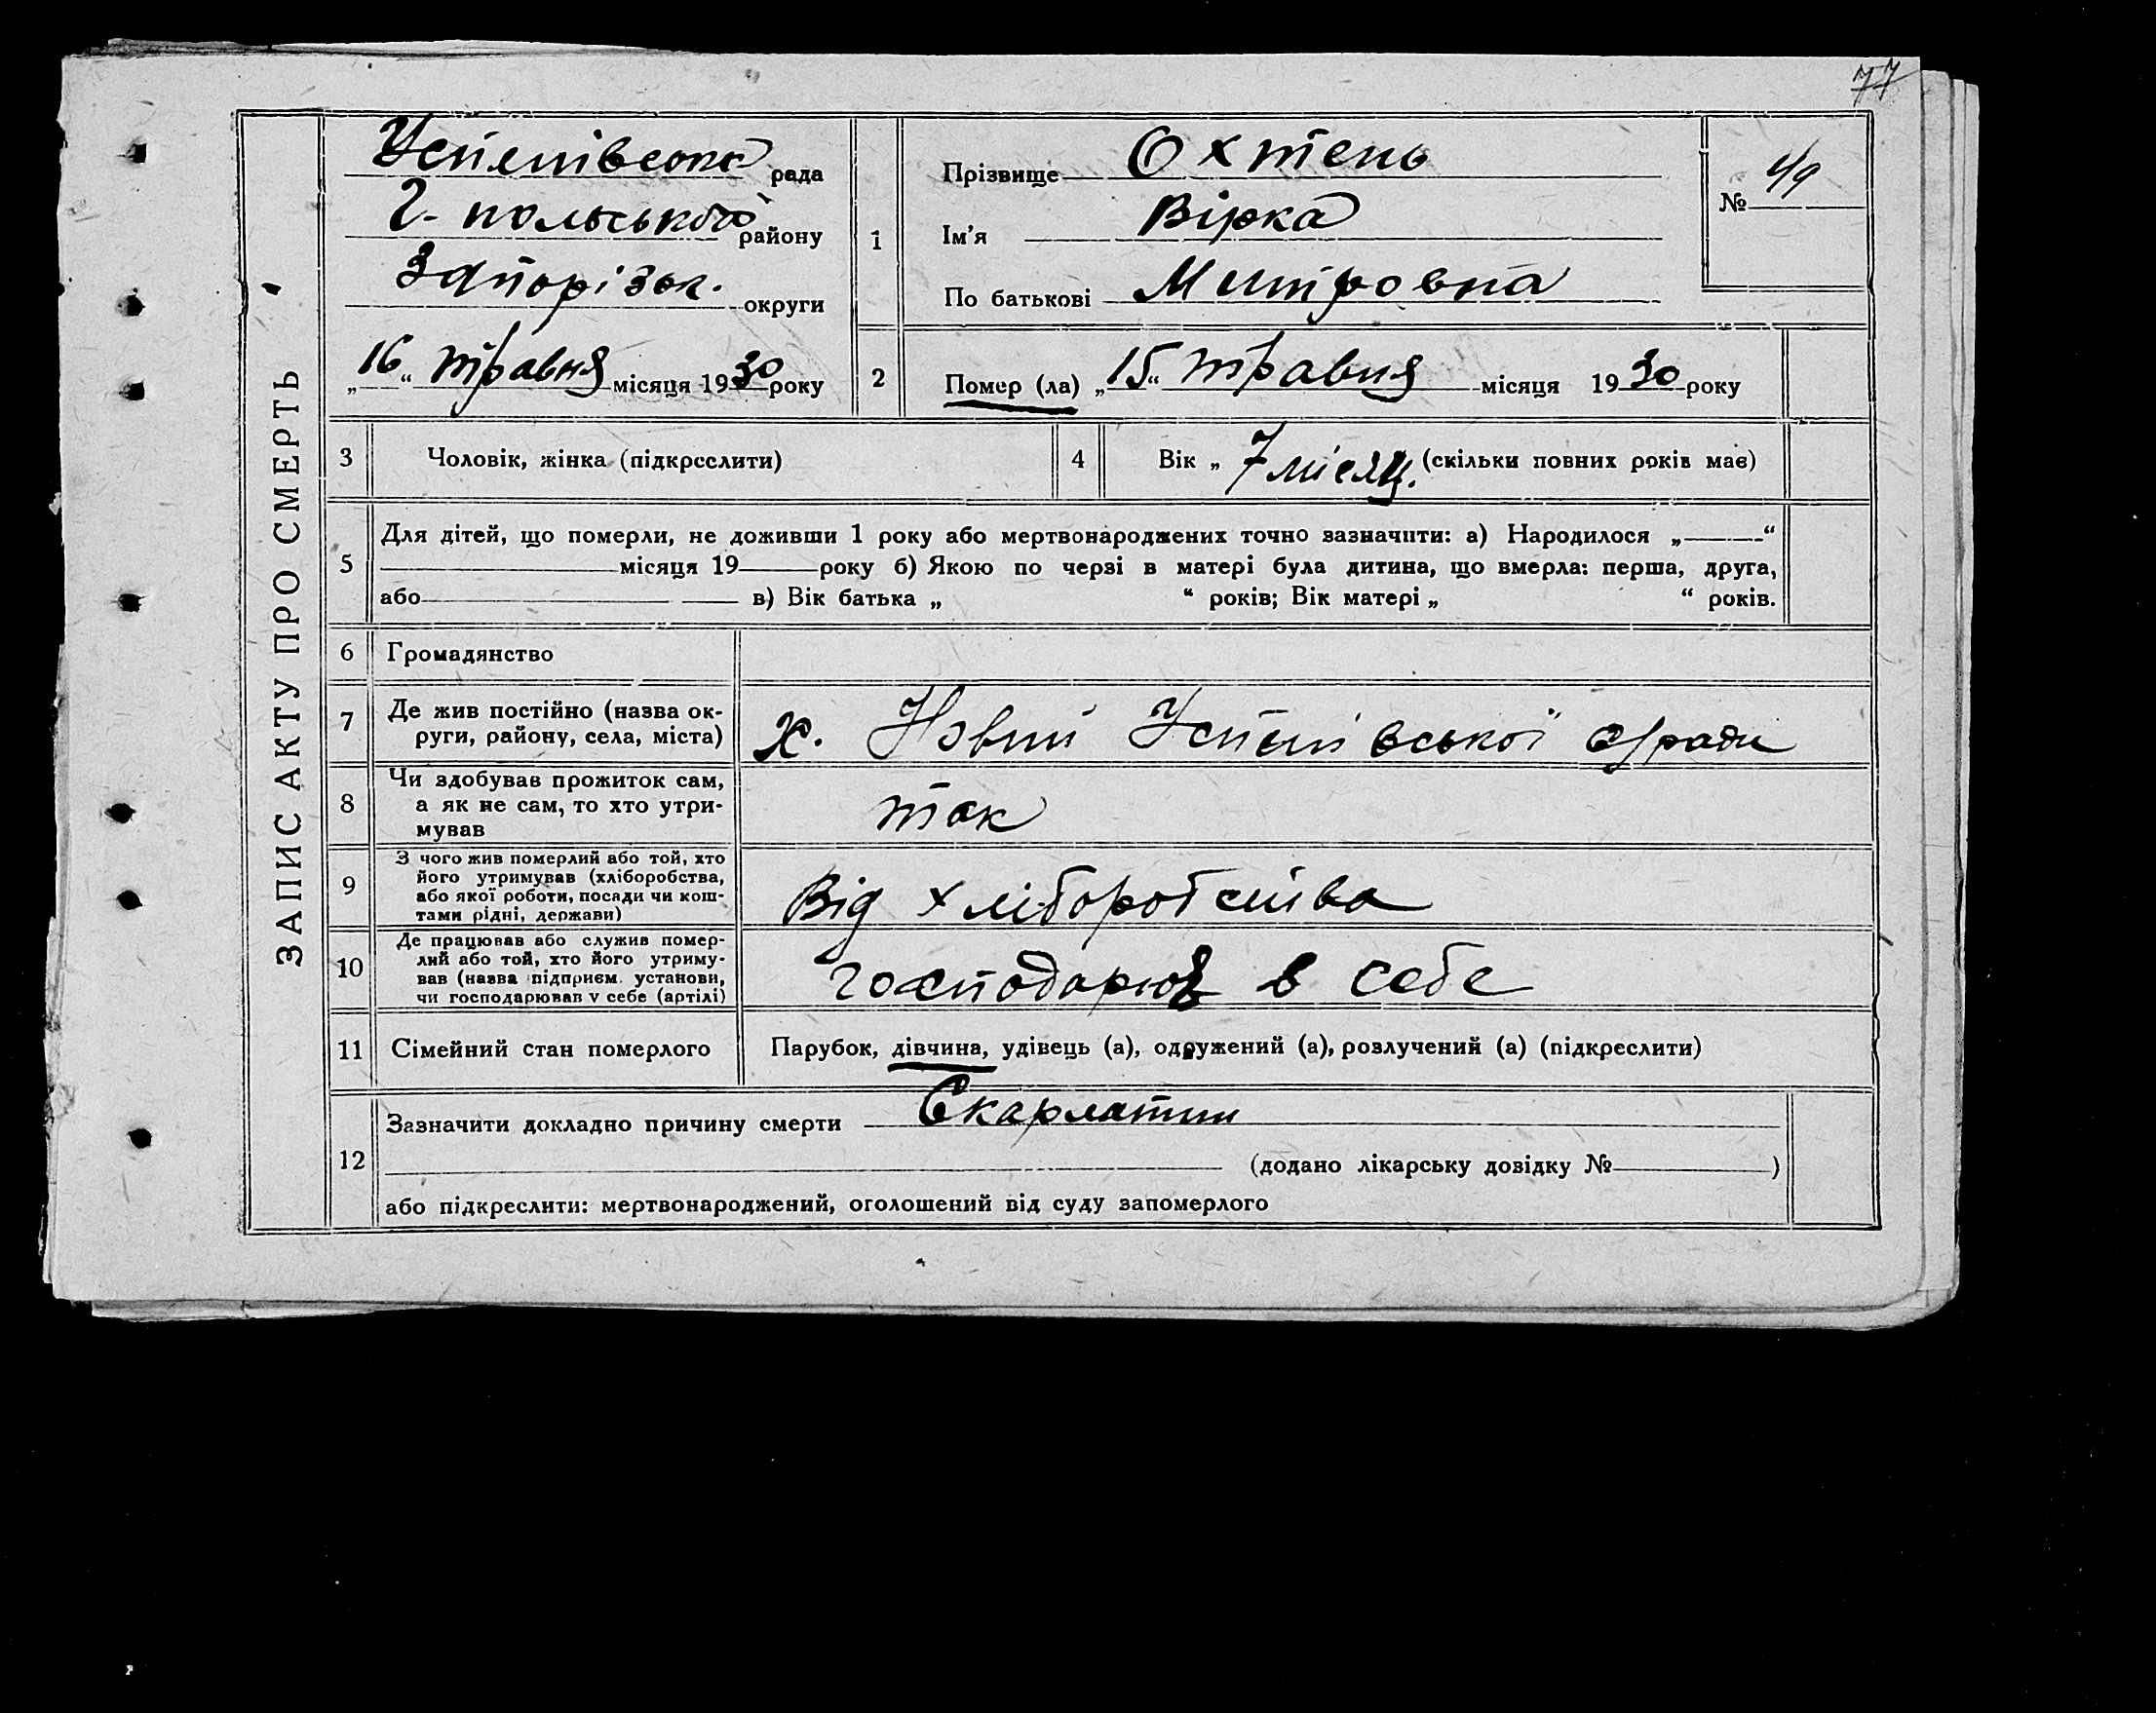 77
ЗАПИС АКТУ ПРО СМЕРТЬ
Успенівська рада
Г-польського району
Запорізьк. округи
„16“ травня місяця 1930 року
1
Прізвище Охтень
Ім'я Вірка
По батькові Митровна
№ 49
2
Помер (ла) „15“ травня місяця 1930 року
3 Чоловік, жінка (підкреслити)
4 Вік „7 місяц. (скільки повних років має)
5 Для дітей, що померли, не доживши 1 року або мертвонароджених точно зазначити: а) Народилося „——“
місяця 19 року б) Якою по черзі в матері була дитина, що вмерла: перша, друга,
або в) Вік батька „ “ років; Вік матері „ “ років.
6 Громадянство
7 Де жив постійно (назва ок-
руги, району, села, міста)
х. Новий Успенівської с/ради
8 Чи здобував прожиток сам,
а як не сам, то хто утри-
мував
так
9 З чого жив померлий або той, хто
його утримував (хліборобства,
або якої роботи, посади чи кош-
тами рідні, держави)
Від хліборобства
10 Де працював або служив помер-
лий або той, хто його утриму-
вав (назва підприєм. установи,
чи господарював у себе (артілі)
господарюв в себе
11 Сімейний стан померлого
Парубок, дівчина, удівець (а), одружений (а), розлучений (а) (підкреслити)
12 Зазначити докладно причину смерти Скарлатин
(додано лікарську довідку № )
або підкреслити: мертвонароджений, оголошений від суду запомерлого